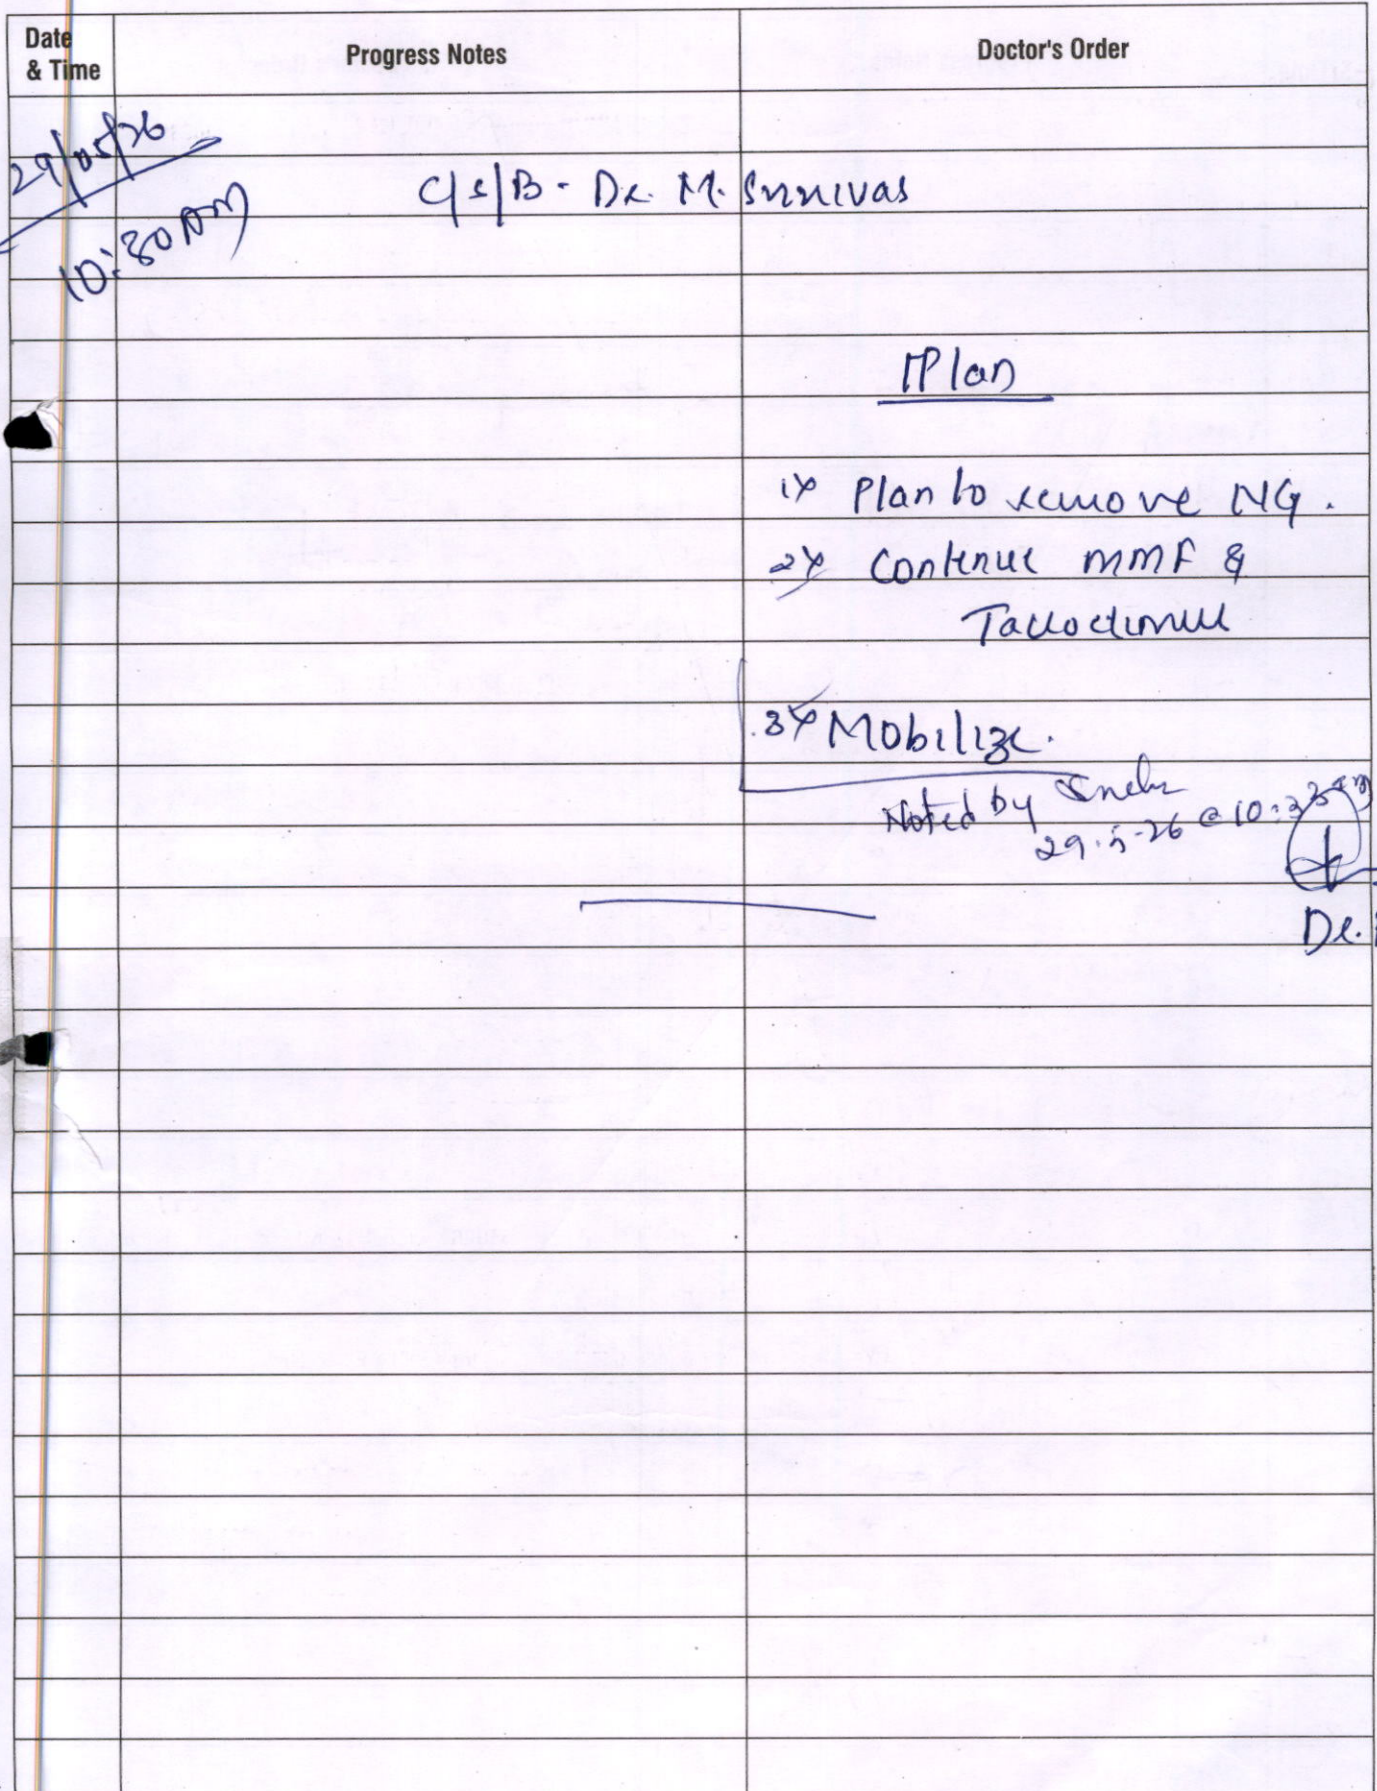 Date
& Time
Progress Notes
Doctor's Order
29/05/26
10:30 AM
C/S/B - Dr. M. Srinivas
Plan
1) Plan to remove NG.
2) Continue MMF &
Tacrolimus
3) Mobilize.
Noted by Sneha
29.5-26 @ 10:35 AM
Dr.